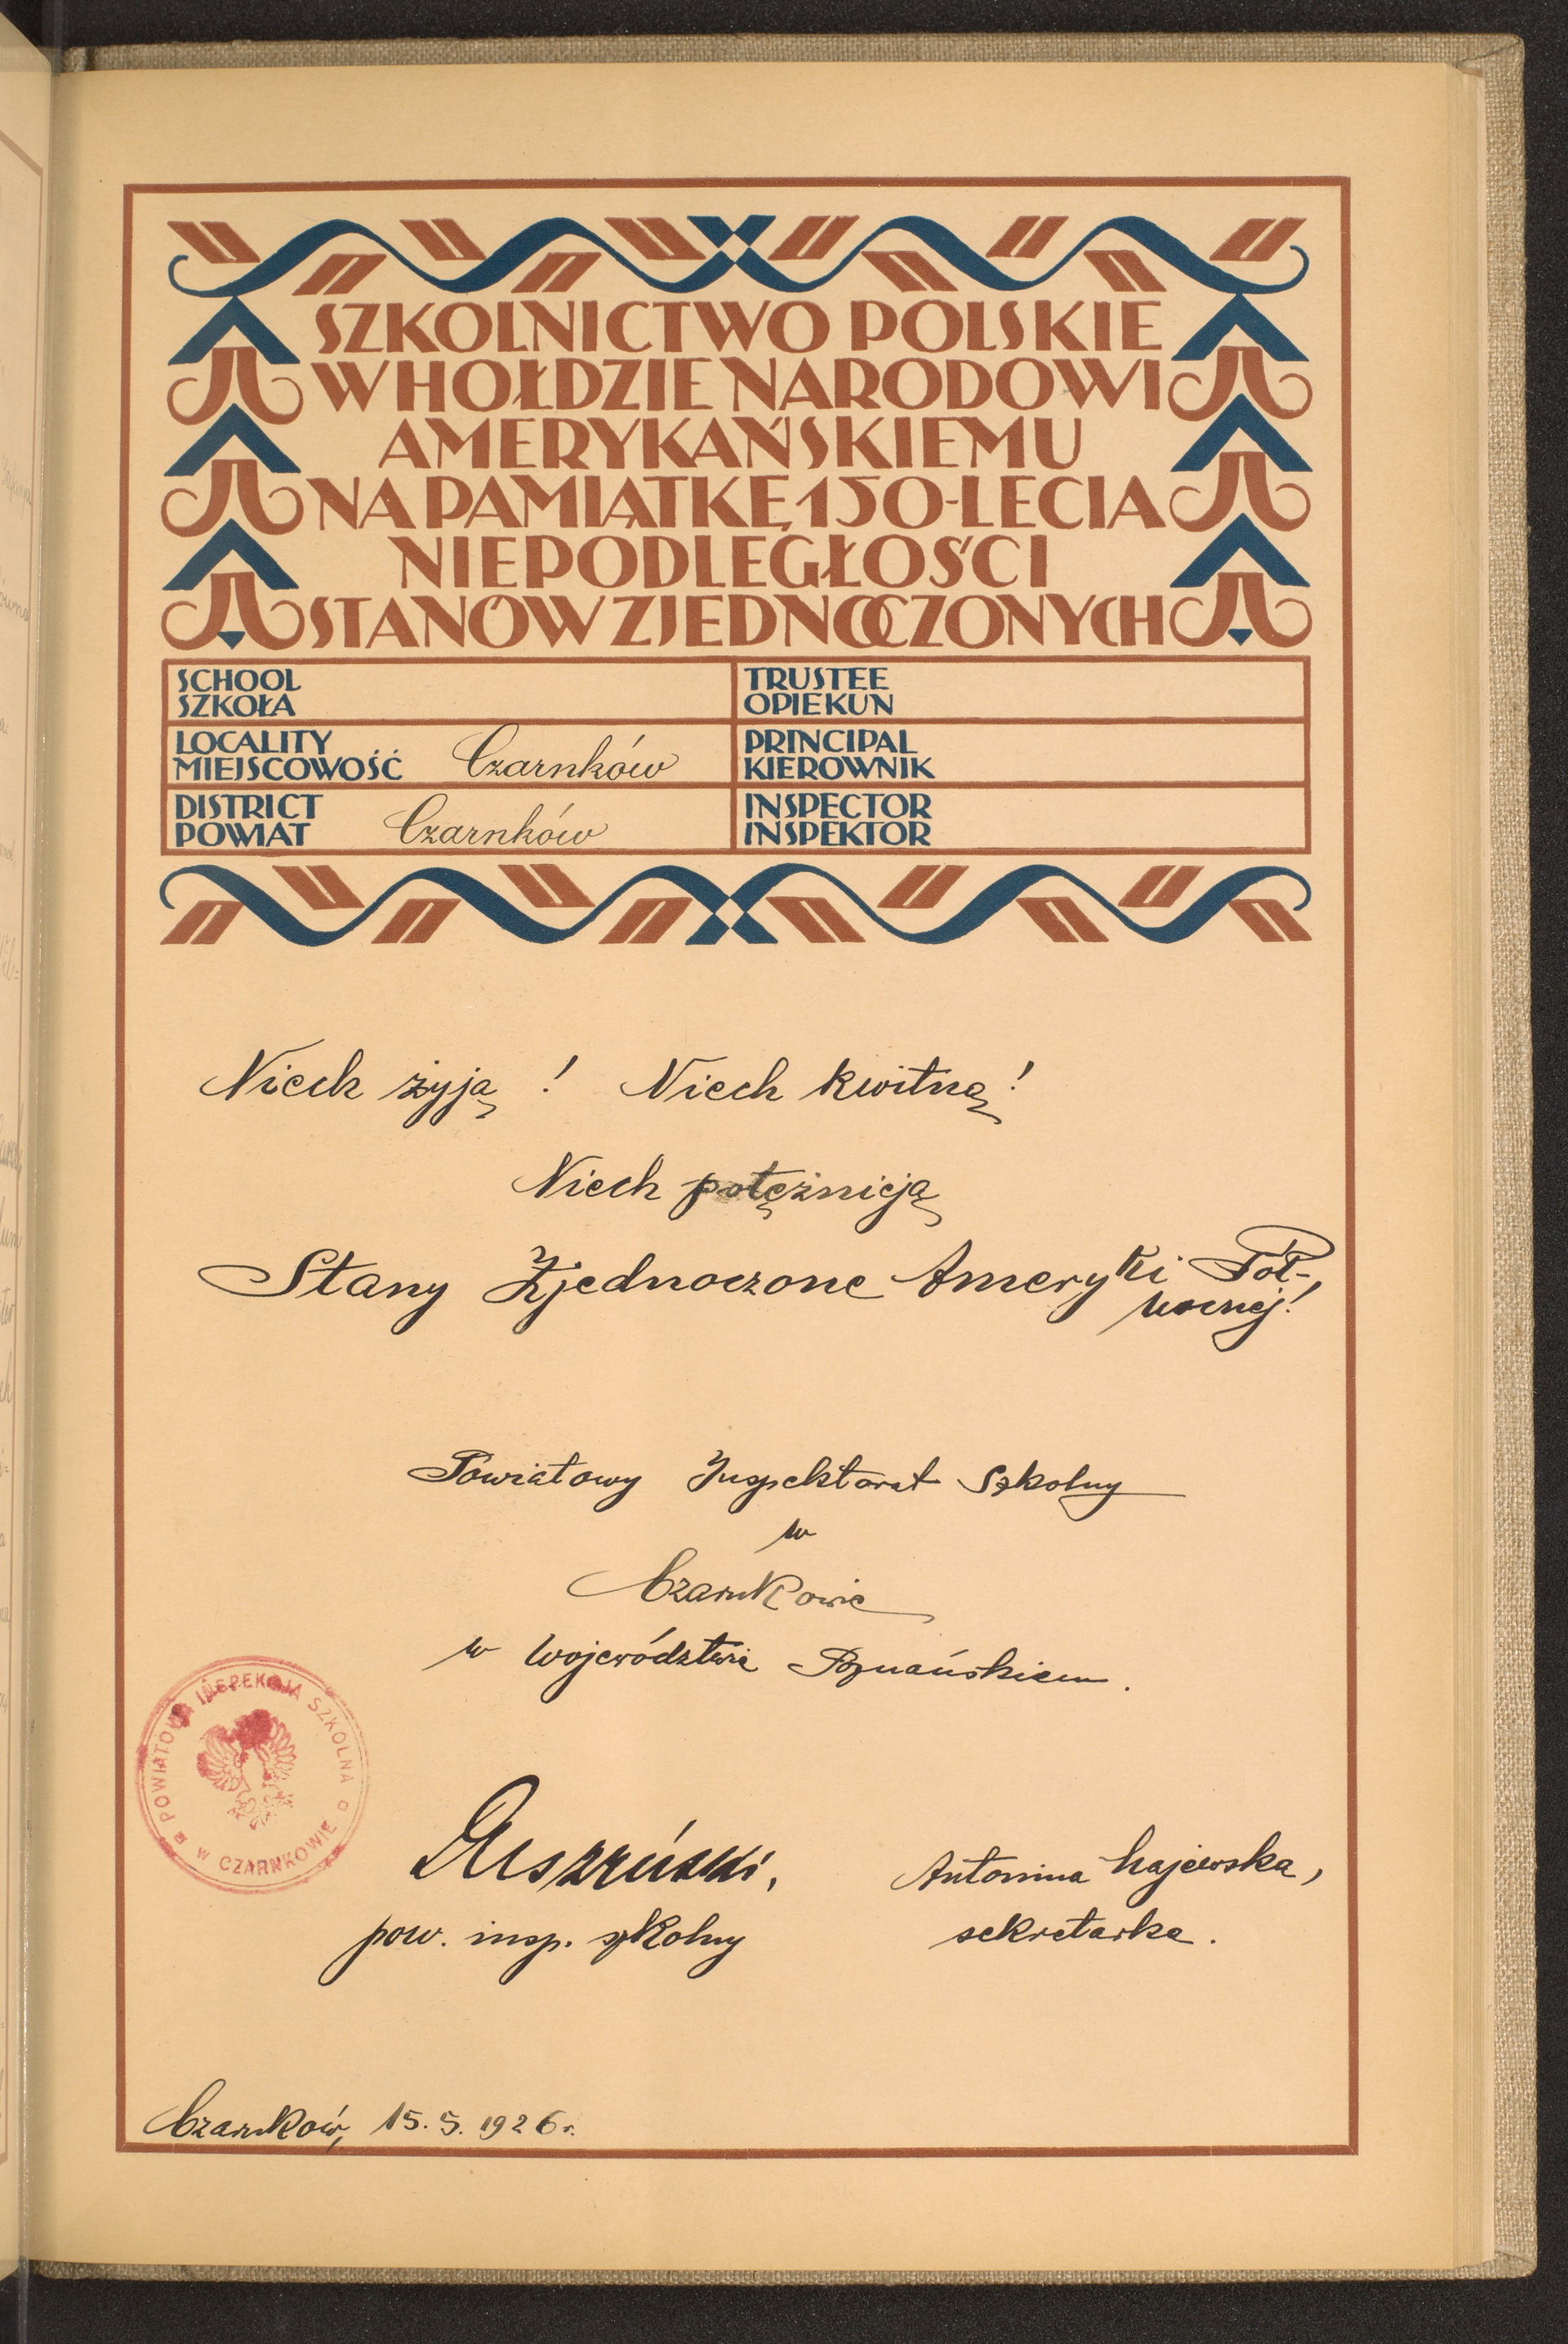 SZKOLNICTWO POLSKIE
W HOŁDZIE NARODOWI
AMERYKAŃSKIEMU
NA PAMIĄTKĘ 150-LECIA
NIEPODLEGŁOŚCI
STANÓW ZJEDNOCZONYCH
SCHOOL
SZKOŁA
TRUSTEE
OPIEKUN
LOCALITY
MIEJSCOWOŚĆ Czarnków
PRINCIPAL
KIEROWNIK
DISTRICT
POWIAT Czarnków
INSPECTOR
INSPEKTOR
Niech żyją! Niech kwitną!
Niech potężnieją
Stany Zjednoczone Ameryki Pół-
nocnej!
Powiatowy Inspektorat Szkolny
w
Czarnkowie
w Województwie Poznańskiem.
POWIATOWA INSPEKCJA SZKOLNA
W CZARNKOWIE
pow. insp. szkolny
Antonina Majewska,
sekretarka.
Czarnków, 15.5.1926 r.